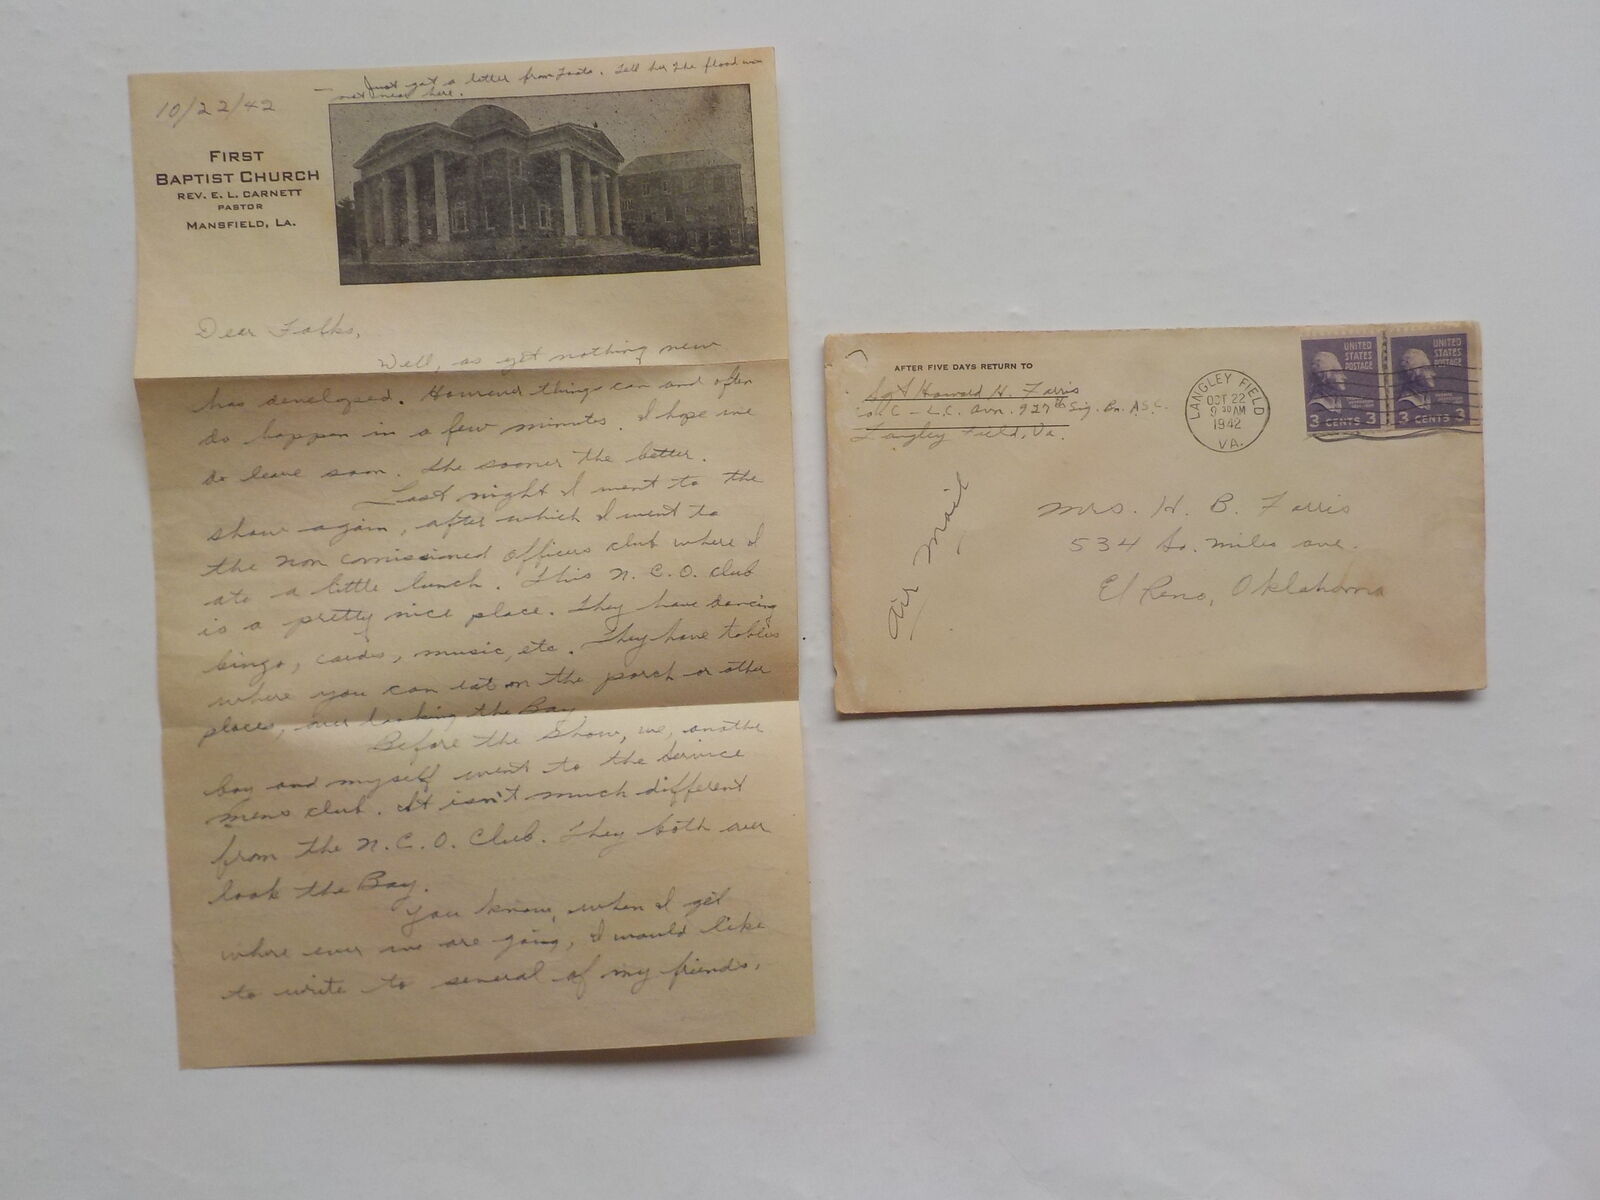 Just got a letter from . Tell her the flood was
not near here.
10/22/42
FIRST
BAPTIST CHURCH
REV. E. L. CARNETT
PASTOR
MANSFIELD, LA.
Dear Folks,
Well, as yet nothing new
has developed. However things can and often
do happen in a few minutes. I hope we
do leave soon. The sooner the better.
Last night I went to the
show again, after which I went to
the non comissioned officers club where I
ate a little lunch. This N.C.O. club
is a pretty nice place. They have dancing
bingo, cards, music, etc. They have tables
where you can eat on the porch or other
places, over looking the Bay
Before the Show, we, another
boy and myself went to the Service
mens club. It isn't much different
from the N.C.O. Club. They both over
look the Bay.
You know, when I get
where ever we are going, I would like
to write to several of my friends.
AFTER FIVE DAYS RETURN TO
Sgt Howard H. Farris
Co. C - L.C. Avn. 927th Sig. Bn. A.S.C.
Langley Field, Va.
LANGLEY FIELD
OCT 22
9 30 AM
1942
VA.
UNITED
STATES
POSTAGE
3 CENTS 3
UNITED
STATES
POSTAGE
3 CENTS 3
Air Mail
Mrs. H. B. Farris
534 So. Miles ave.
El Reno, Oklahoma